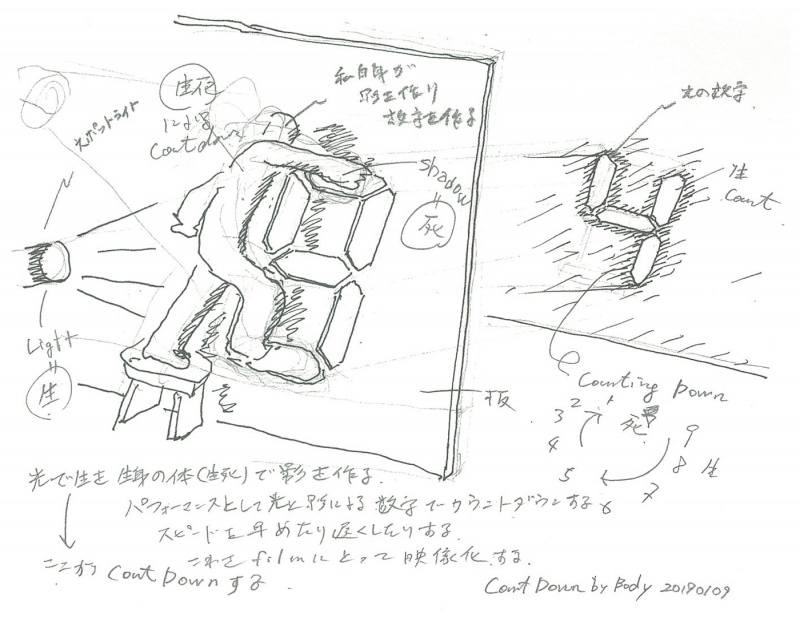 スポットライト
生死
による
Count down
私自身が
影を作り
数字を作る
光の数字
生
Count
shadow
=
死
Light
=
生
板
Counting Down
3 2 1 死 9
4 8 生
5 7 6
光で生を 生身の体(生死)で影を作る.
パフォーマンスとして光と影による数字でカウントダウンする
スピードを早めたり遅くしたりする.
これを filmにとって映像化する.
ここから Count Downする
Count Down by Body 20190109